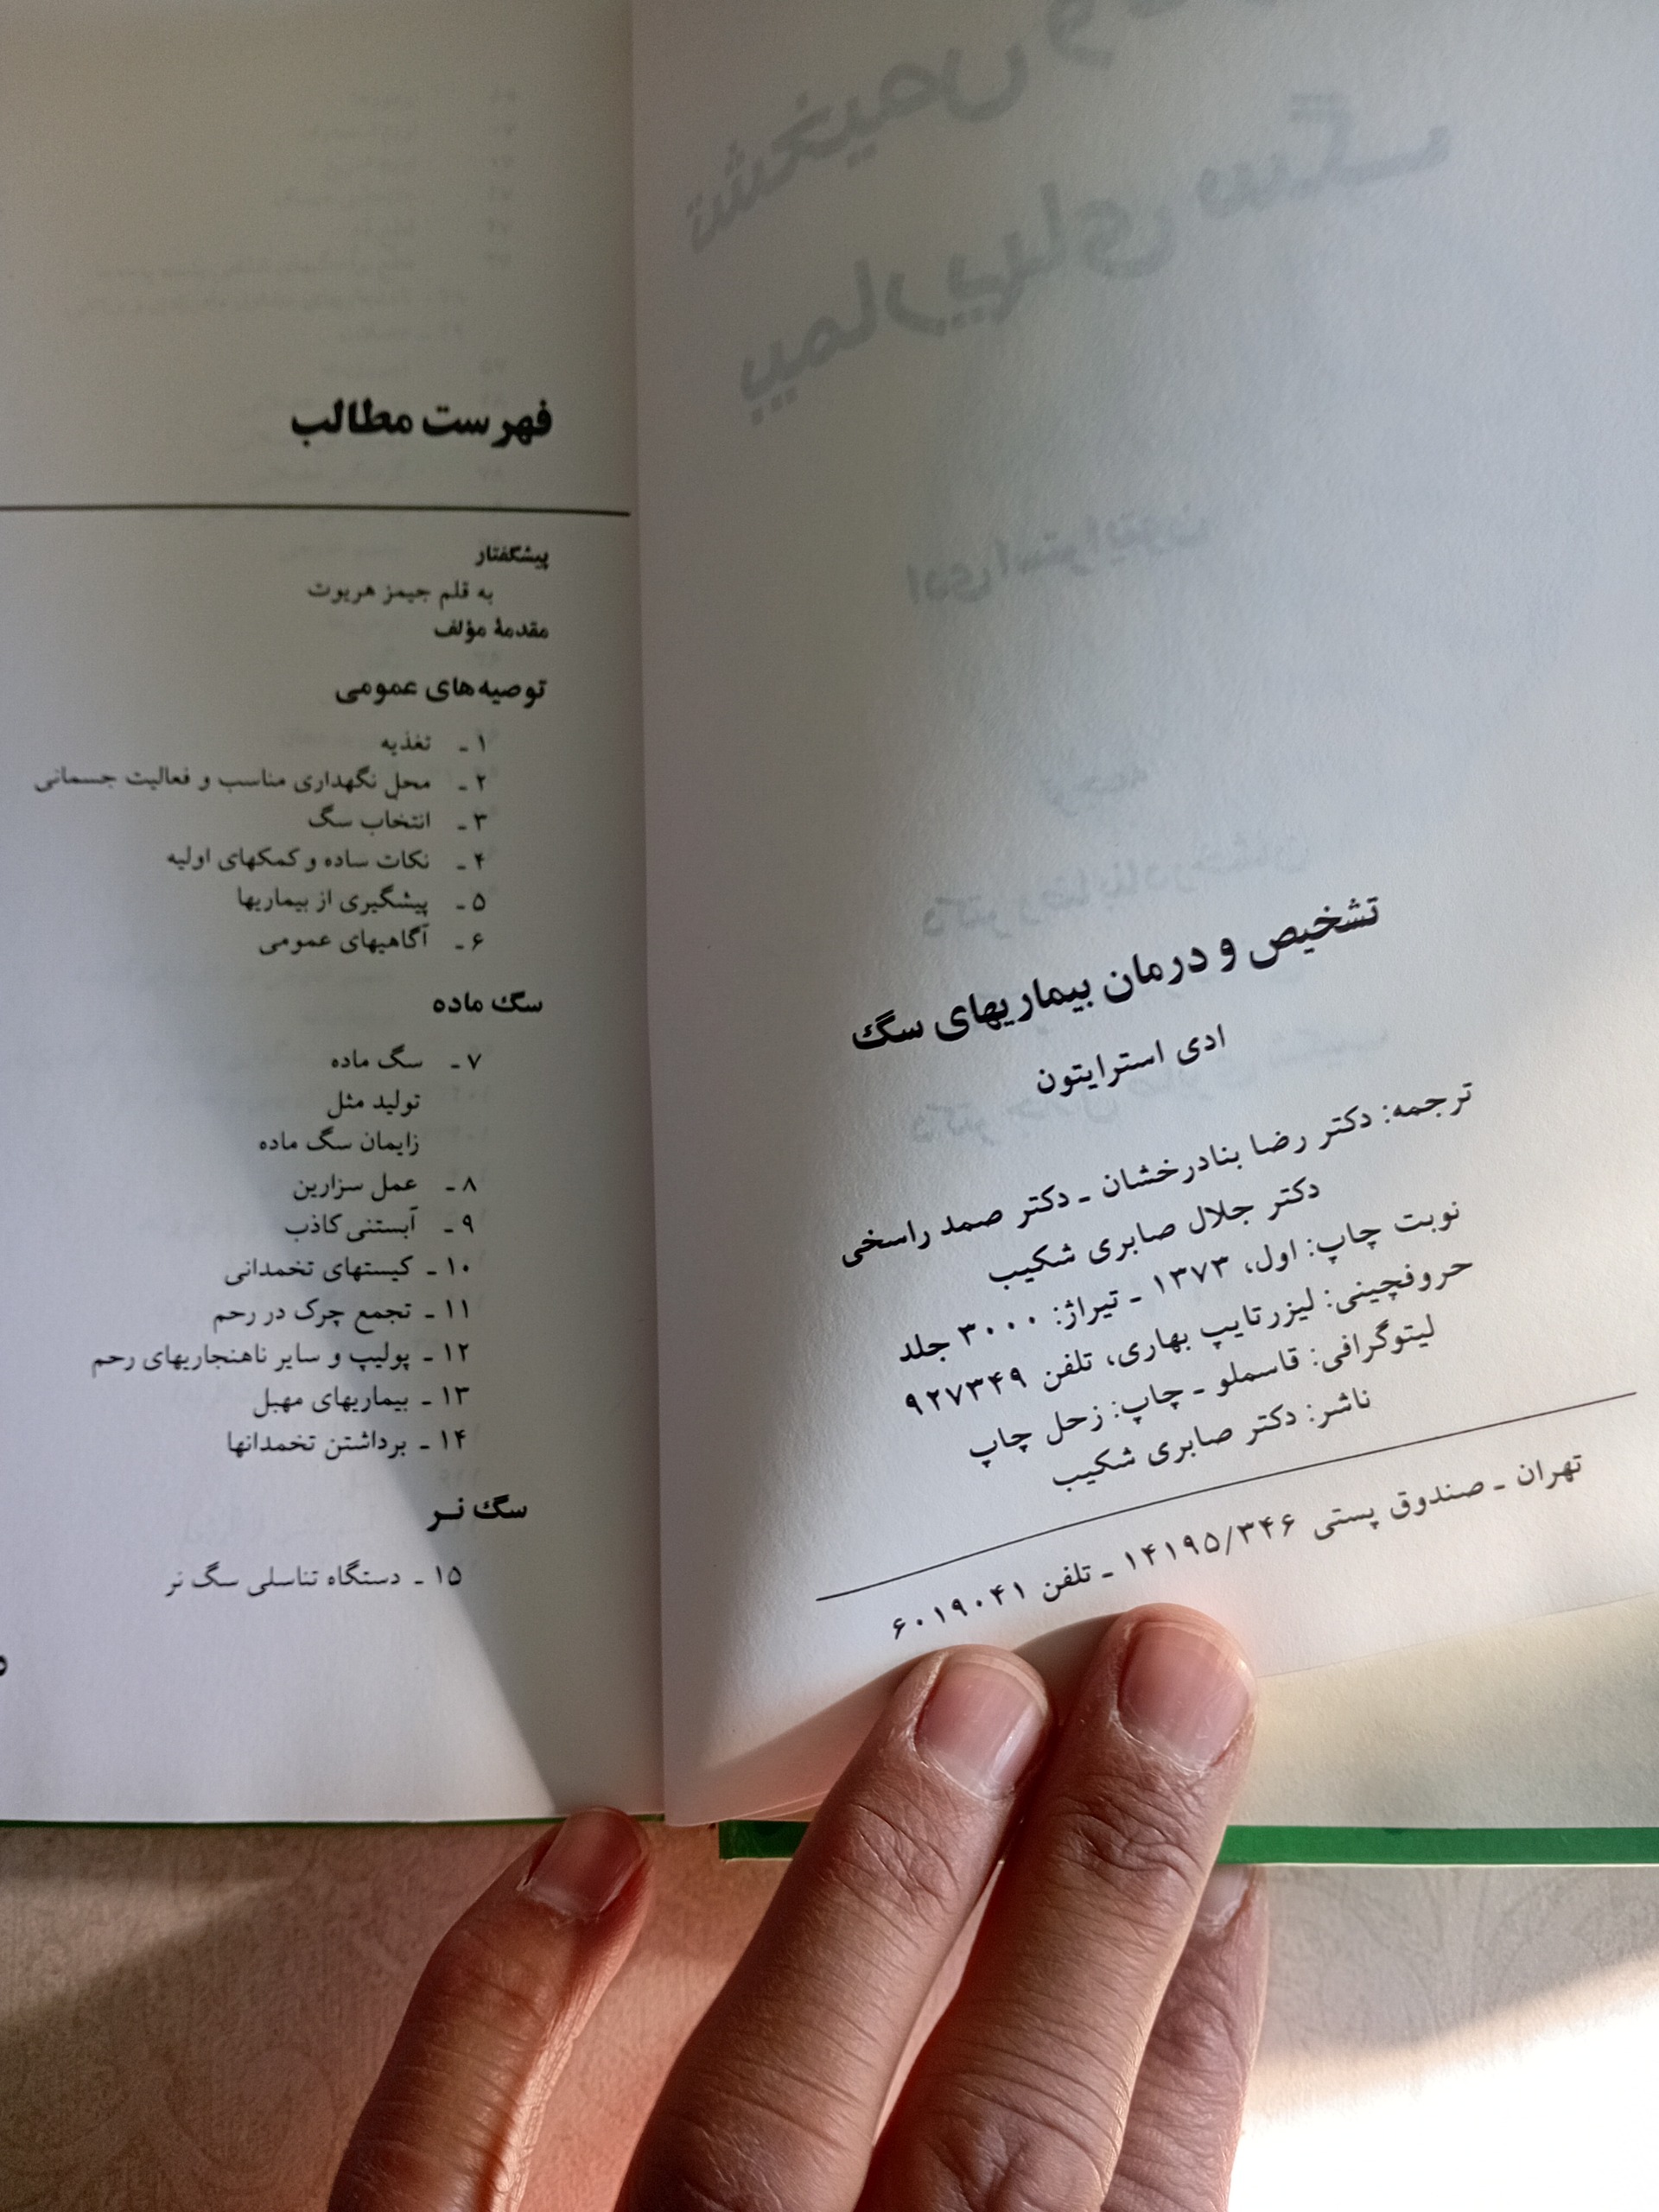 تشخیص و درمان بیماریهای سگ
ادی استرایتون
ترجمه: دکتر رضا بنادرخشان ـ دکتر صمد راسخی
دکتر جلال صابری شکیب
نوبت چاپ: اول، ۱۳۷۳ ـ تیراژ: ۳۰۰۰ جلد
حروفچینی: لیزرتایپ بهاری، تلفن ۹۲۷۳۴۹
لیتوگرافی: قاسملو ـ چاپ: زحل چاپ
ناشر: دکتر صابری شکیب
تهران ـ صندوق پستی ۱۴۱۹۵/۳۴۶ ـ تلفن ۶۰۱۹۰۴۱
فهرست مطالب
پیشگفتار
به قلم جیمز هریوت
مقدمهٔ مؤلف
توصیه‌های عمومی
۱ ـ تغذیه
۲ ـ محل نگهداری مناسب و فعالیت جسمانی
۳ ـ انتخاب سگ
۴ ـ نکات ساده و کمکهای اولیه
۵ ـ پیشگیری از بیماریها
۶ ـ آگاهیهای عمومی
سگ ماده
۷ ـ سگ ماده
تولید مثل
زایمان سگ ماده
۸ ـ عمل سزارین
۹ ـ آبستنی کاذب
۱۰ ـ کیستهای تخمدانی
۱۱ ـ تجمع چرک در رحم
۱۲ ـ پولیپ و سایر ناهنجاریهای رحم
۱۳ ـ بیماریهای مهبل
۱۴ ـ برداشتن تخمدانها
سگ نـر
۱۵ ـ دستگاه تناسلی سگ نر